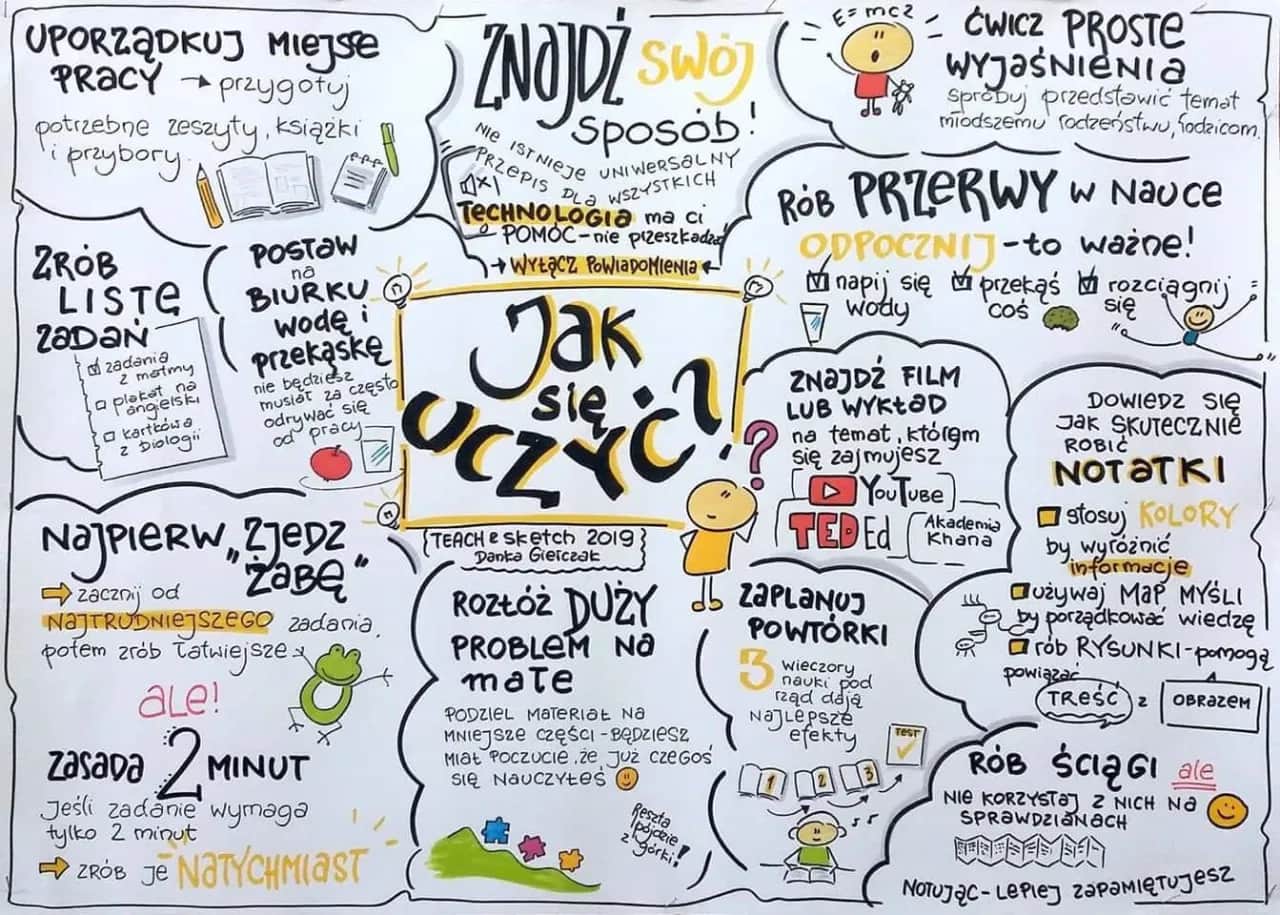 UPORZĄDKUJ MIEJSCE
PRACY → przygotuj
potrzebne zeszyty, książki
i przybory.
ZNAJDŹ SWÓJ
SPOSÓB!
NIE ISTNIEJE UNIWERSALNY
PRZEPIS DLA WSZYSTKICH
TECHNOLOGIA ma ci
POMÓC - nie przeszkadzać
→ WYŁĄCZ POWIADOMIENIA ←
E=mc2
ĆWICZ PROSTE
WYJAŚNIENIA
spróbuj przedstawić temat
młodszemu rodzeństwu, rodzicom.
RÓB PRZERWY W NAUCE
ODPOCZNIJ - to ważne!
napij się
wody
przekąś
coś
rozciągnij
się
ZRÓB
LISTĘ
ZADAŃ
zadania
z matmy
plakat na
angielski
kartkówa
z biologii
POSTAW
na
BIURKU
WODĘ i
PRZEKĄSKĘ
nie będziesz
musiał za często
odrywać się
od pracy
Jak
się
uczyć?
?
{TEACH & SKETCH 2019}
Danka Gierczak
ZNAJDŹ FILM
LUB WYKŁAD
na temat, którym
się zajmujesz
YouTube
TED Ed
Akademia
Khana
DOWIEDZ SIĘ
JAK SKUTECZNIE
ROBIĆ
NOTATKI
stosuj KOLORY
by wyróżnić
informacje
używaj MAP MYŚLI
by porządkować wiedzę
rób RYSUNKI - pomogą
powiązać
TREŚĆ z OBRAZEM
NAJPIERW „ZJEDZ
ŻABĘ"
→ zacznij od
NAJTRUDNIEJSZEGO zadania,
potem zrób łatwiejsze
ale!
ZASADA 2 MINUT
Jeśli zadanie wymaga
tylko 2 minut
→ ZRÓB JE NATYCHMIAST
ROZŁÓŻ DUŻY
PROBLEM NA
małe
PODZIEL MATERIAŁ NA
MNIEJSZE CZĘŚCI - BĘDZIESZ
MIAŁ POCZUCIE, ŻE JUŻ CZEGOŚ
SIĘ NAUCZYŁEŚ
Reszta
pójdzie
z górki!
ZAPLANUJ
POWTÓRKI
3 wieczory
nauki pod
rząd dają
NAJLEPSZE
efekty
TEST
1 2 3
RÓB ŚCIĄGI ale
NIE KORZYSTAJ Z NICH NA
SPRAWDZIANACH
NOTUJĄC - LEPIEJ ZAPAMIĘTUJESZ